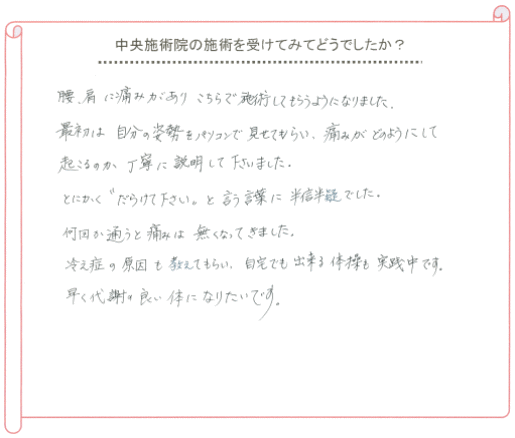 中央施術院の施術を受けてみてどうでしたか？
腰、肩に痛みがありこちらで施術してもらうようになりました。
最初は自分の姿勢をパソコンで見せてもらい、痛みがどのようにして
起こるのか丁寧に説明して下さいました。
とにかく"だらけて下さい"と言う言葉に半信半疑でした。
何回か通うと痛みは無くなってきました。
冷え症の原因も教えてもらい、自宅でも出来る体操も実践中です。
早く代謝の良い体になりたいです。